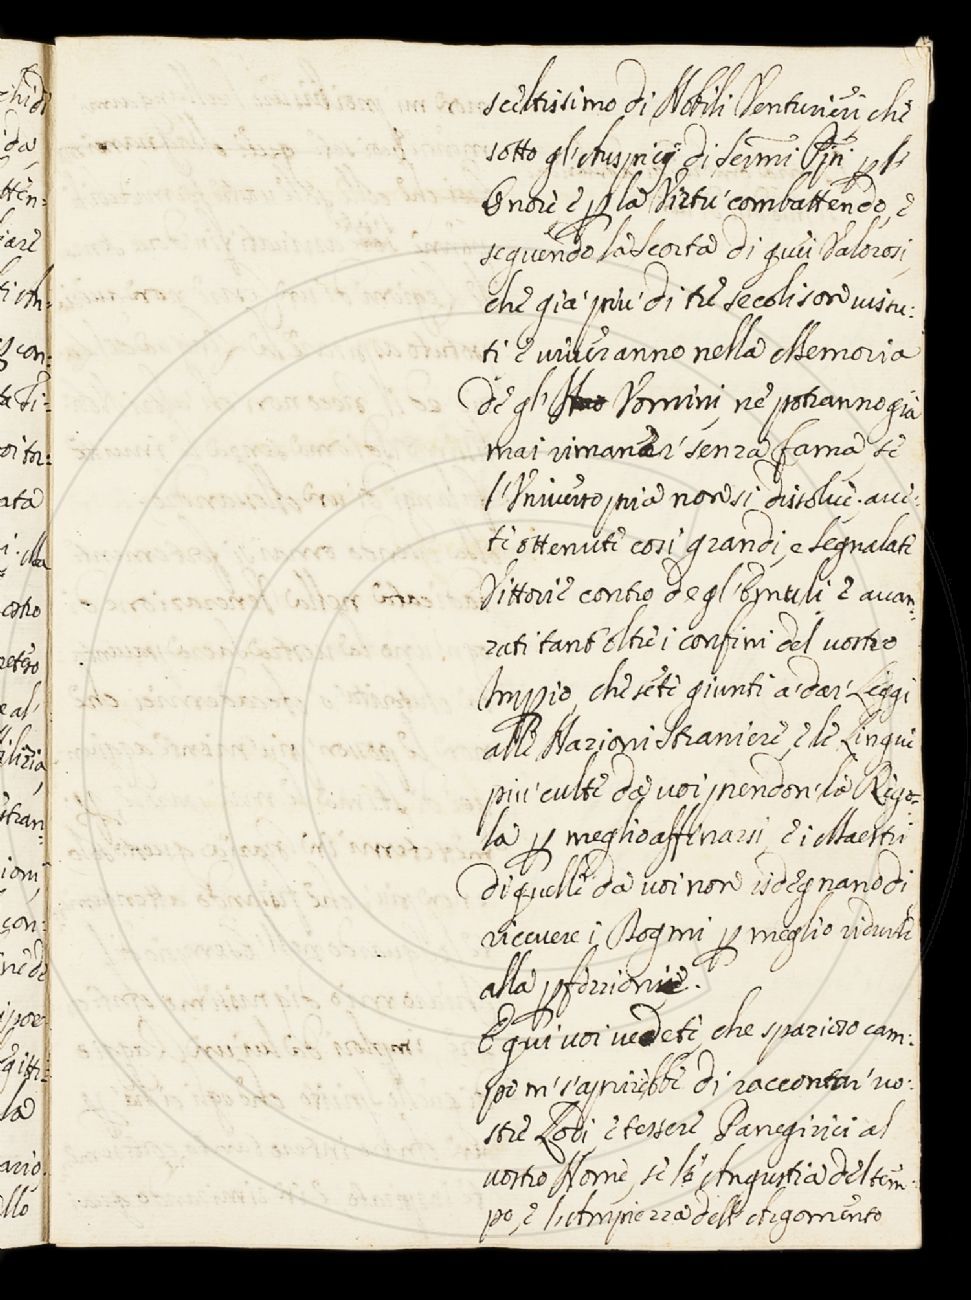 sceltissimo di Nobili Venturieri che
sotto gl'Auspicij di Sermi Ppi. p l'
Onore e p la Virtù combattendo, e
seguendo la Scorta di quei Valorosi,
che già più di tre secoli sono vissu:
ti e viveranno nella Memoria
de gl' Vomini, ne potranno già
mai rimaner' senza fama, se
l'Vniverso pria non si dissolve. avē:
ti ottenute così grandi, e segnalate
Vittorie contro de gl'Emuli e avan:
zati tant'oltre i confini del vostro
Imppio, che sete giunti a' dar' Leggi
alle Nazioni Straniere, e le Lingue
più culte da voi prendon' la Rego:
la p meglio affinarsi, e i Maestri
di quelle da voi non isdegnano di
ricevere i Dogmi p meglio ridurle
alla pfezzione.
E qui voi vedete, che spazioso cam:
po m' s'aprirebbe di raccontar' vo:
stre Lodi e tessere Panegirici al
vostro Nome, se l'Angustia del tem:
po, e l'Ampiezza dell'Argomento